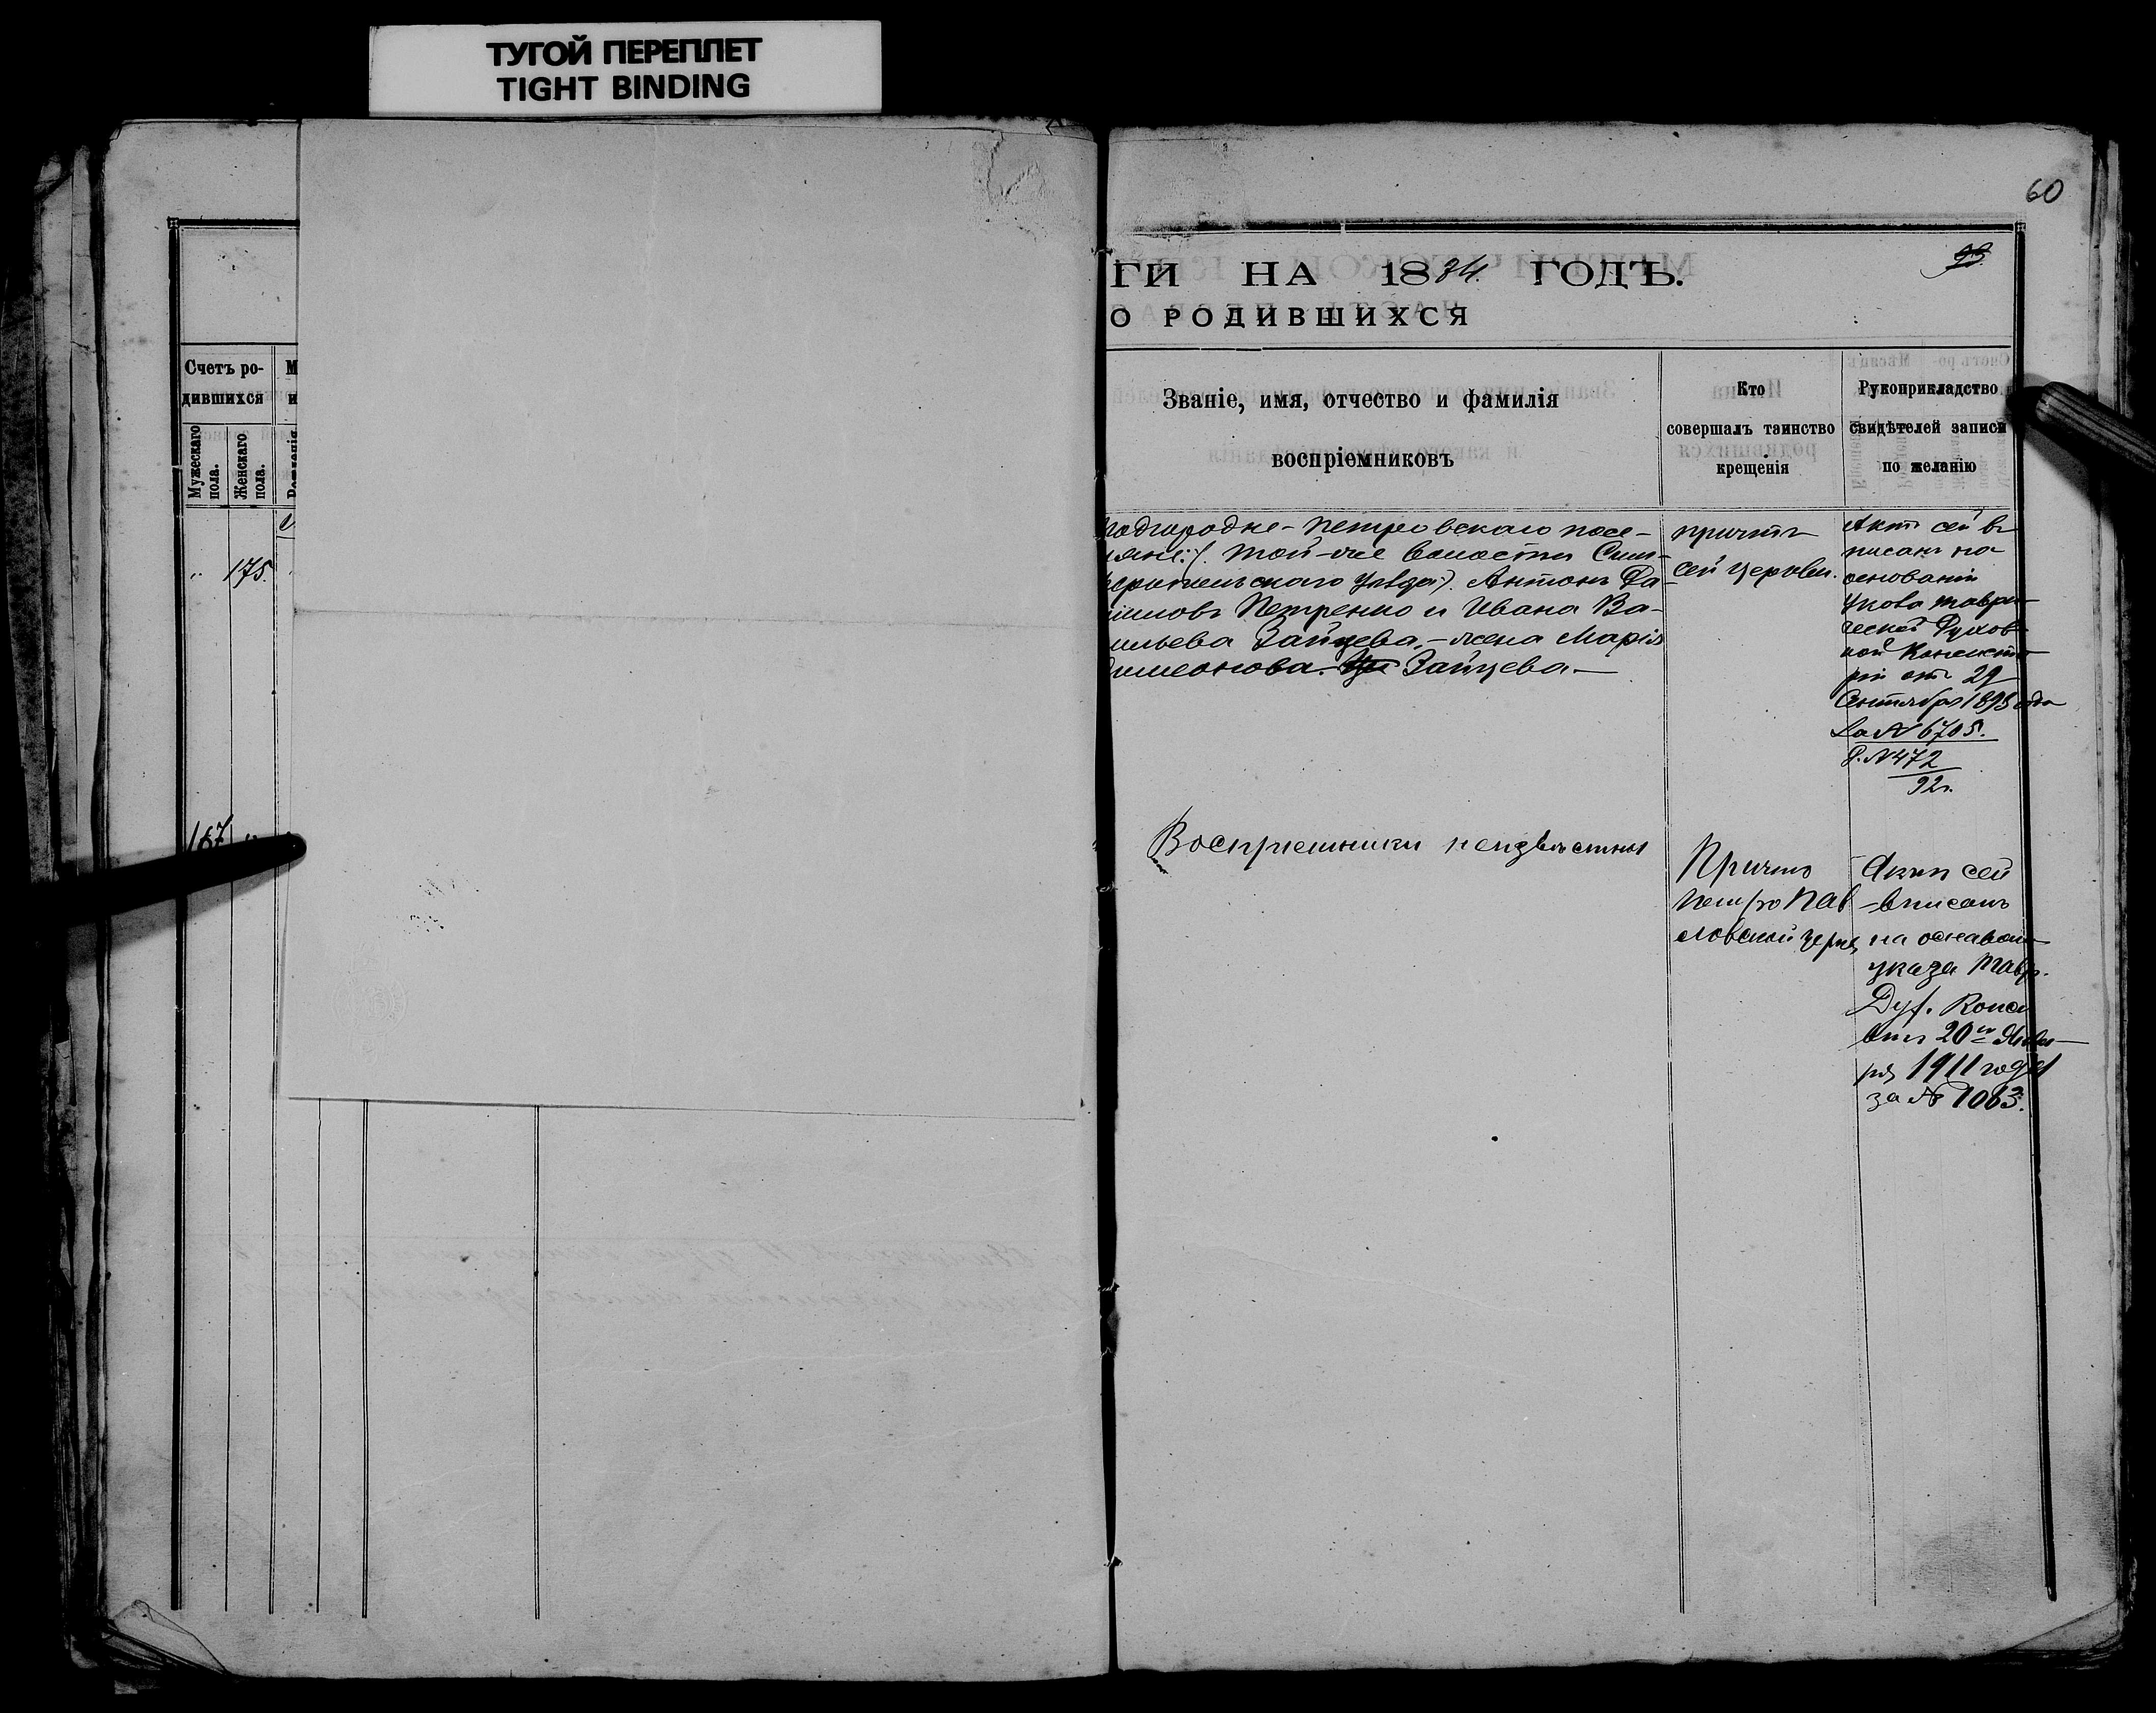 ТУГОЙ ПЕРЕПЛЕТ
TIGHT BINDING
60
ГИ НА 1884. ГОДЪ.
99.
О РОДИВШИХСЯ
Счетъ ро-
дившихся
Мужескаго
пола.
Женскаго
пола.
М
и
175.
167
Званіе, имя, отчество и фамилія
воспріемниковъ
Кто
совершалъ таинство
крещенія
Рукоприкладство
свидѣтелей записи
по желанію
Подгородне-Петровскаго посе-
той-же волости Сим-
уѣзда). Антонъ Да-
Петренко и Ивана Ва-
сильева Зайцева, - жена Марія
Симеонова Зайцева -
причтъ
сей церкви.
Актъ сей в
писанъ на
основаніи
Указа Таври-
ческой Духов-
ной Консисто
ріи отъ 29
Сентября 1895 года
За № 6705.
Р. № 472
92 г.
Восприемники неизвѣстны
Причтъ
Петро Пав
ловской церкв
Актъ сей
-вписанъ
на основан
указа Тавр.
Дух. Конси
отъ 20го Янва
ря 1911 года
за № 1063.